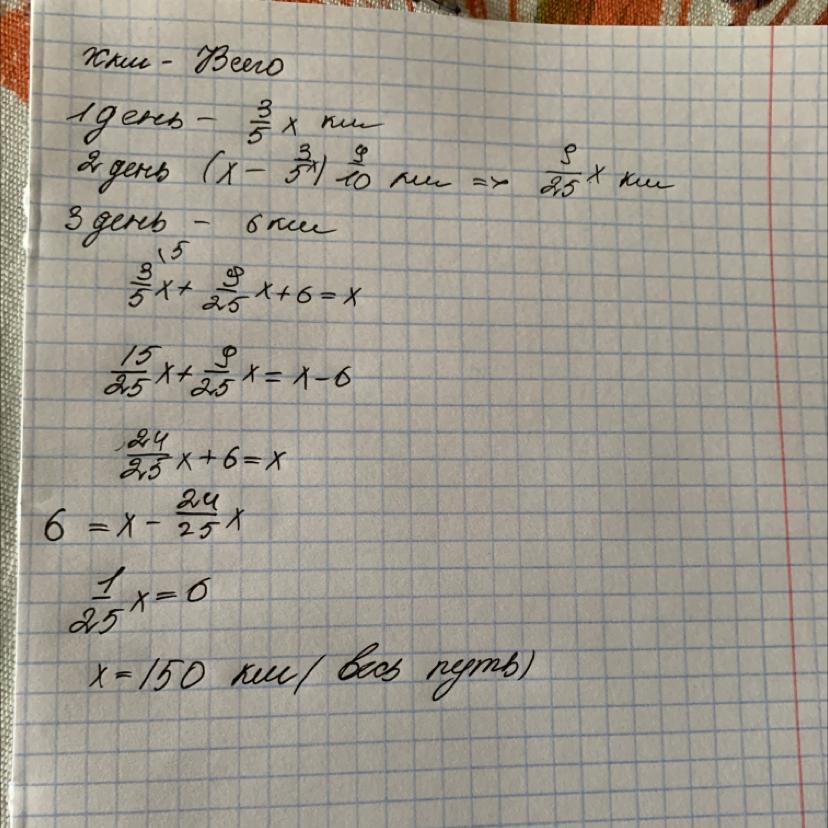 Хкм - Всего
1 день - 3/5 x км
2 день (x - 3/5x) 9/10 км => 9/25 x км
3 день - 6 км
3/5\5 x + 9/25 x + 6 = x
15/25 x + 9/25 x = x - 6
24/25 x + 6 = x
6 = x - 24/25 x
1/25 x = 6
x = 150 км ( весь путь)